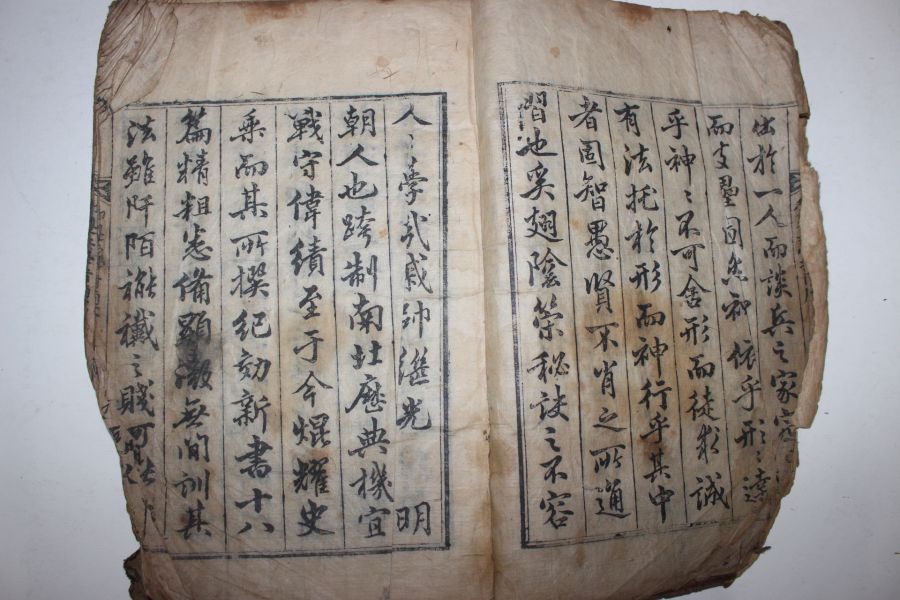 於一人而談兵之家
而支 神依乎形〻
乎神〻不可舍形而徒求誠
有法托於形而神行乎其中
者固智愚賢不肖之所通
習也奚翅陰策秘訣之不容
人〻學哉戚帥繼光 明
朝人也跨制南北歷典機宜
戰守偉績至于今焜耀史
乘而其所撰紀効新書十八
篇精粗悉備顯微無間訓其
法雖阡陌 之賤